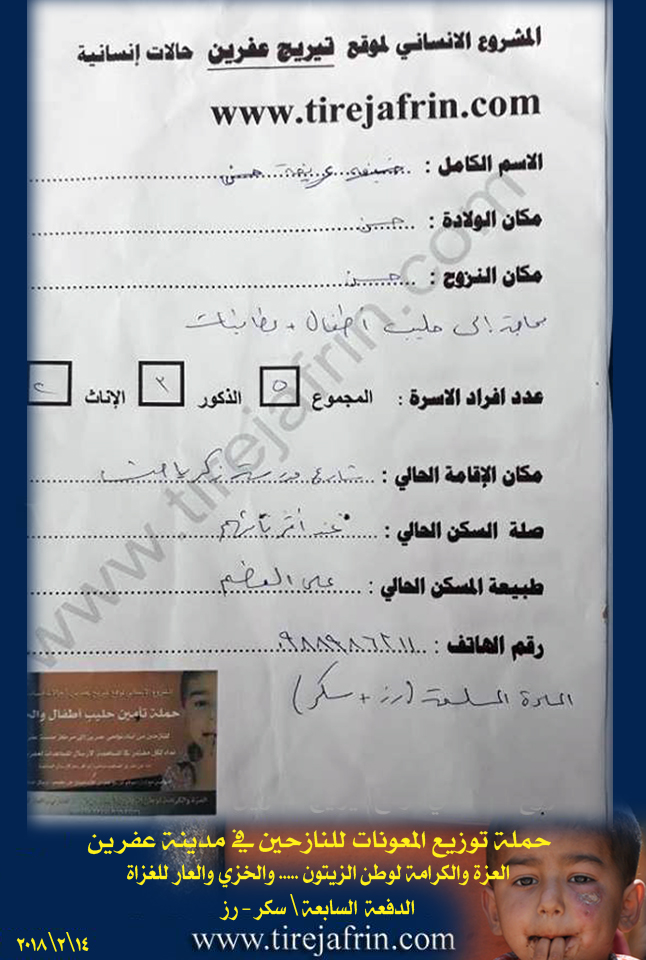 المشروع الانساني لموقع تيريج عفرين حالات إنسانية
www.tirejafrin.com
الاسم الكامل : حسن
مكان الولادة : حسن
مكان النزوح : حسن
بحاجة إلى حليب أطفال + بطانيات
عدد افراد الاسرة : المجموع ٥ الذكور ٣ الإناث ٢
مكان الإقامة الحالي : شارع مدرسة زكريا
صلة السكن الحالي : عند أقربائهم
طبيعة المسكن الحالي : على العضم
رقم الهاتف :
المادة المسلمة (رز + سكر)
www.tirejafrin.com
المشروع الانساني لموقع تيريج عفرين
حملة تأمين حليب أطفال
حملة توزيع المعونات للنازحين في مدينة عفرين
العزة والكرامة لوطن الزيتون ..... والخزي والعار للغزاة
الدفعة السابعة \ سكر - رز
٢٠١٨\٢\١٤
www.tirejafrin.com